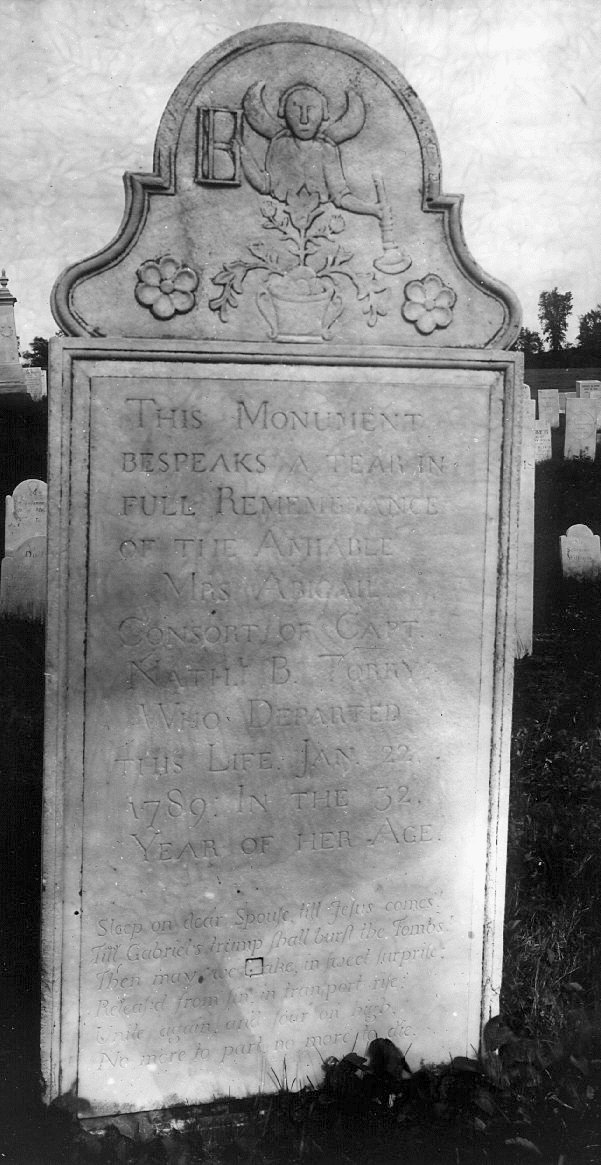 THIS MONUMENT
BESPEAKS A TEAR IN
FULL REMEMBRANCE
OF THE AMIABLE
MRS ABIGAIL
CONSORT OF CAPT.
NATHL. B. TORRY.
WHO DEPARTED
THIS LIFE. JAN. 22.
1789. IN THE 32.
YEAR OF HER AGE.
Sleep on dear Spouſe till Jeſus comes.
Till Gabriel's trump ſhall burſt the Tombs.
Then may we wake, in ſweet ſurpriſe,
Releaſ'd from ſin, in tranſport riſe;
Unite again, and ſoar on high,
No more to part, no more to die.